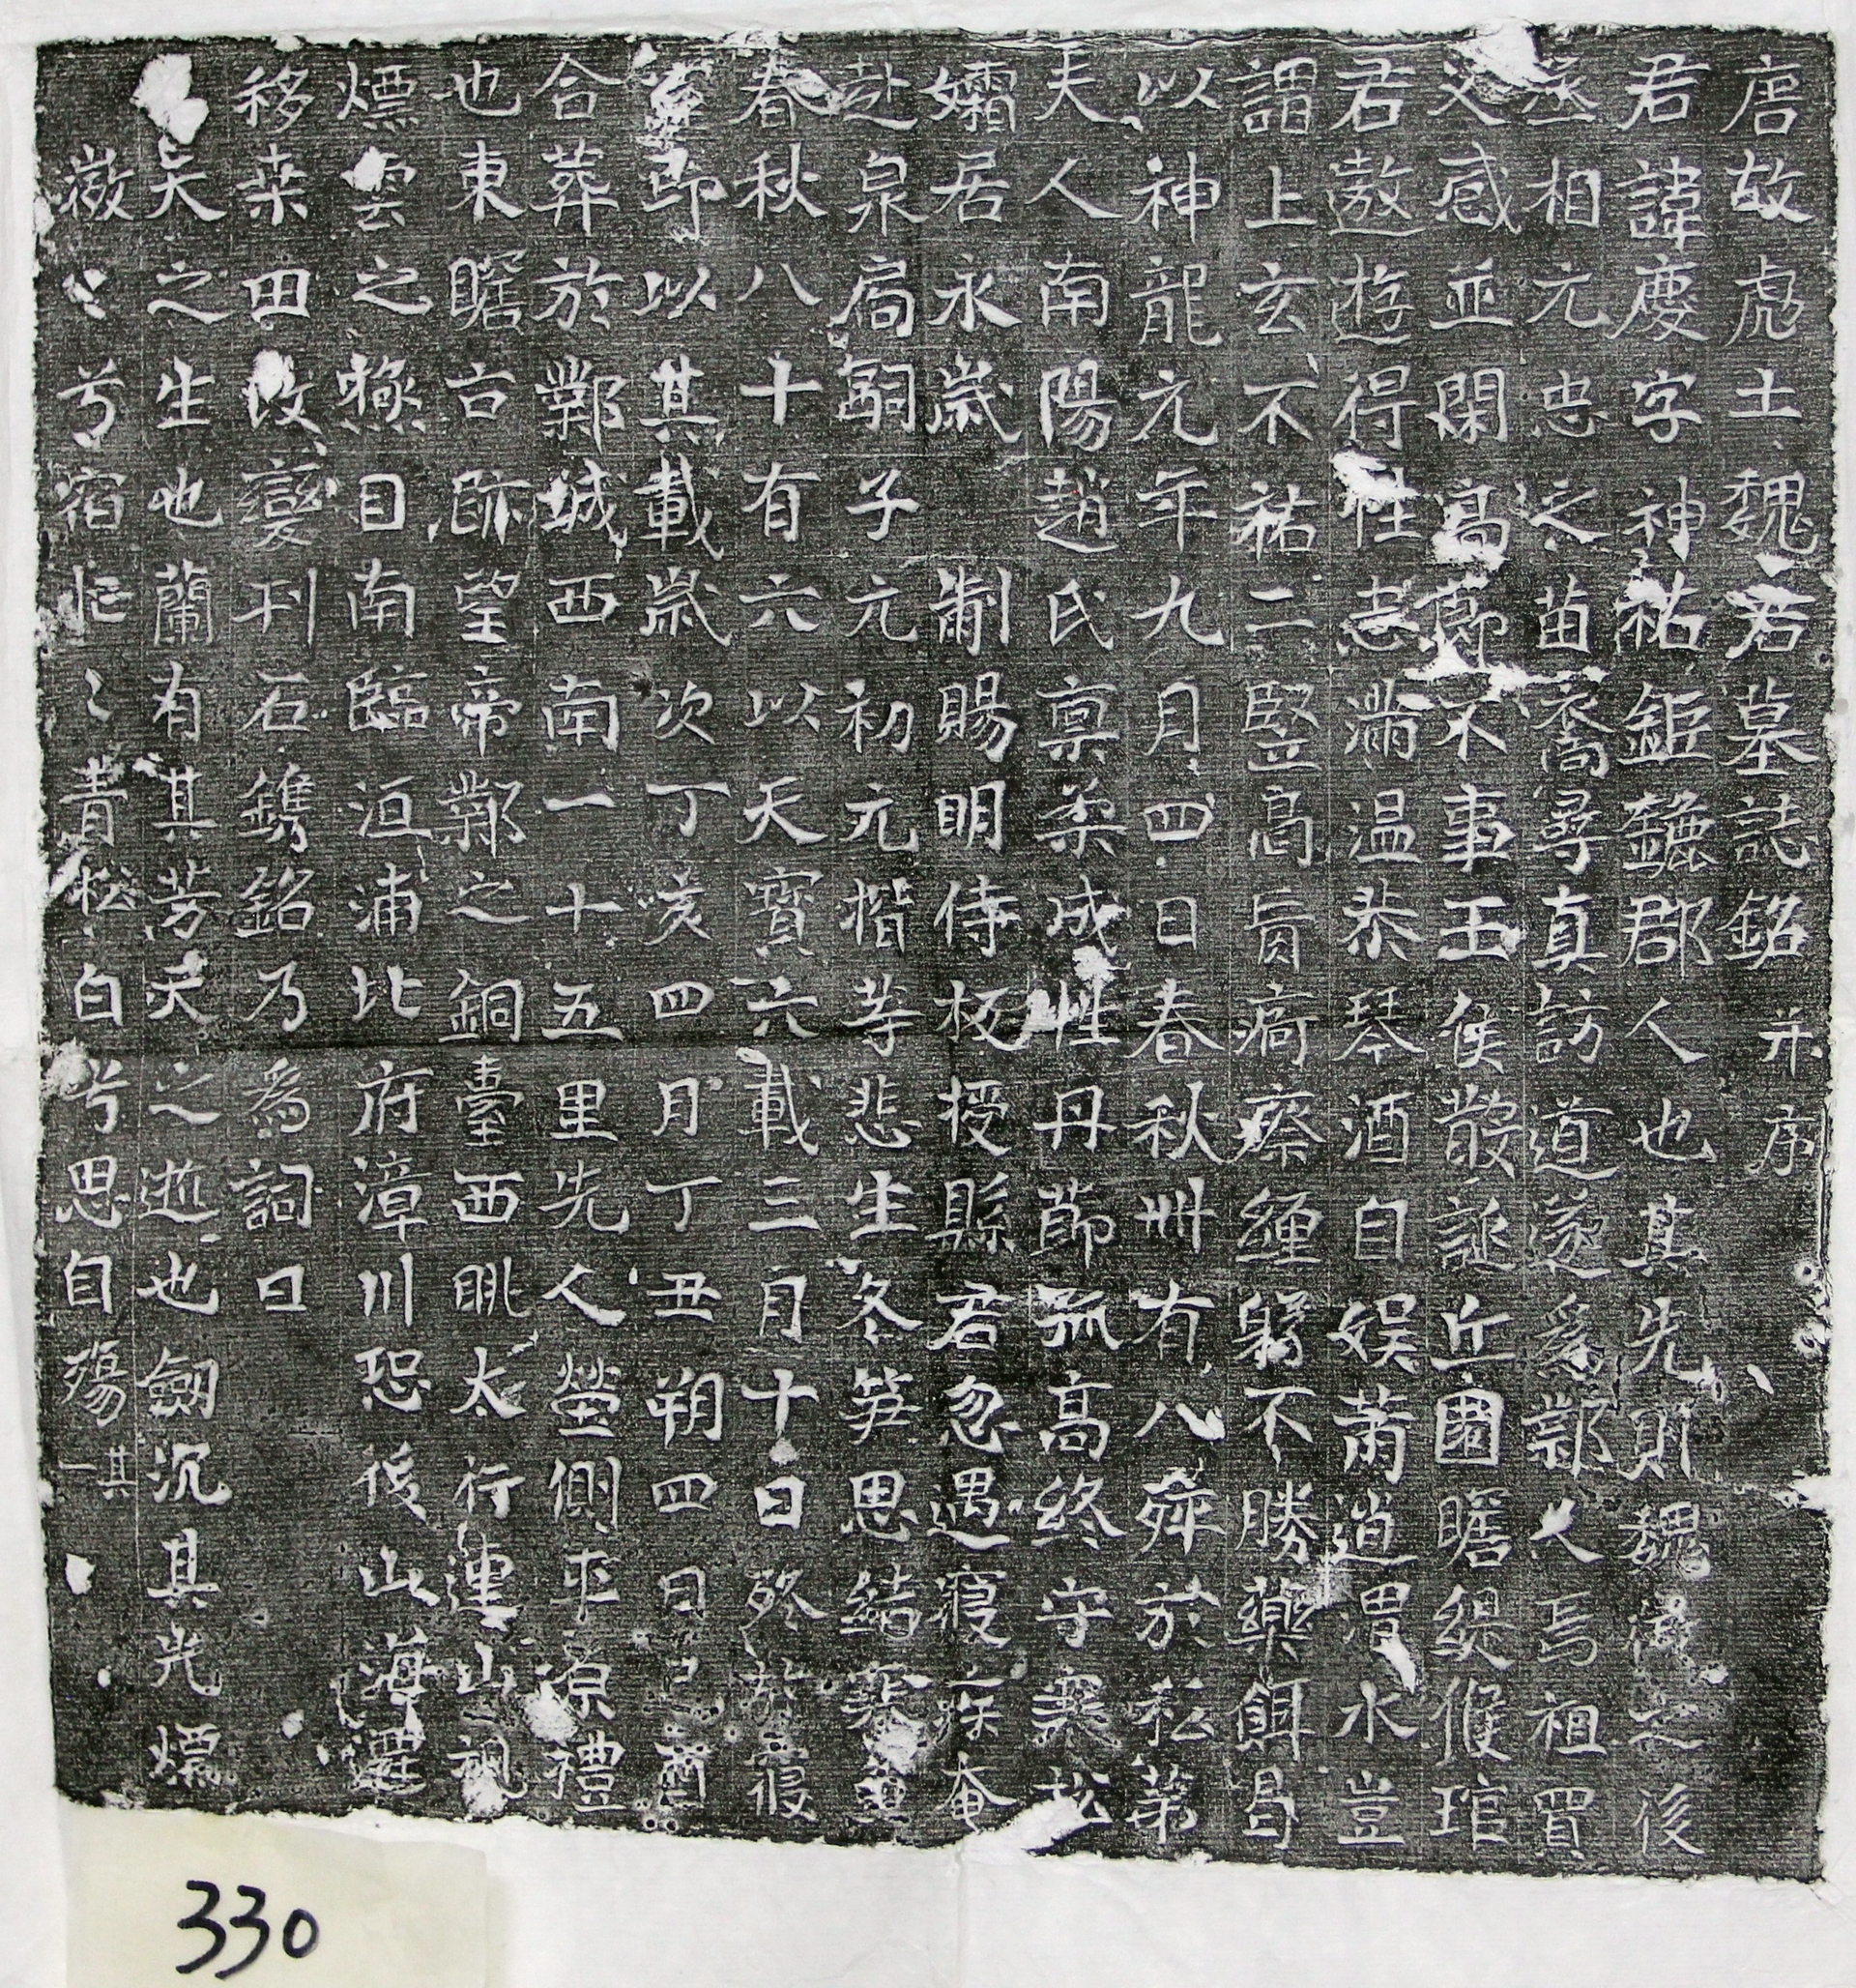 唐故處士魏君墓誌銘 并序
君諱慶字神祐鉅鹿郡人也其先則魏之後
丞相元忠之苗裔尋真訪道遂為鄴人焉祖買
父感並閑高節不事王侯散誕丘園瞻緹候琯
君遨遊得性志滿溫恭琴酒自娛蕭逍渭水豈
謂上玄不祐二豎高肓痾瘵纏躬不勝藥餌曷
以神龍元年九月四日春秋卌有八薨於私第
夫人南陽趙氏稟柔成性丹節孤高終守寡松
孀居永歲 制賜明侍板授縣君忽遇寢疾奄
赴泉扃嗣子元初元楷等悲生冬笋思結寒
春秋八十有六以天寶六載三月十日終於寢
即以其載歲次丁亥四月丁丑朔四日己酉
合葬於鄴城西南一十五里先人塋側平原禮
也東瞻古跡望帝鄴之銅臺西眺太行連山視
煙雲之慘目南臨洹浦北府漳川恐後山海遷
移桒田改變刊石鐫銘乃為詞曰
矣之生也蘭有其芳夭之逝也劍沉其光煙
微〻兮宿茫〻青松白兮思自殤 其一
330